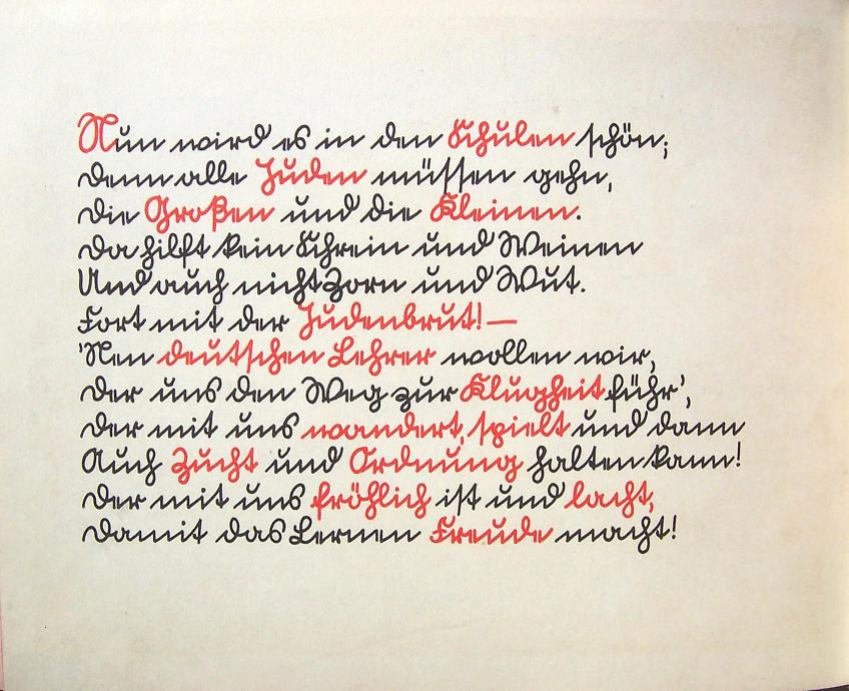 Nun wird es in den Schulen schön;
denn alle Juden müssen gehn,
die Großen und die Kleinen.
Da hilft kein Schrein und Weinen
Und auch nicht Zorn und Wut.
Fort mit der Judenbrut! —
'Nen deutschen Lehrer wollen wir,
Der uns den Weg zur Klugheit führ',
Der mit uns wandert, spielt und dann
Auch Zucht und Ordnung halten kann!
Der mit uns fröhlich ist und lacht,
Damit das Lernen Freude macht!